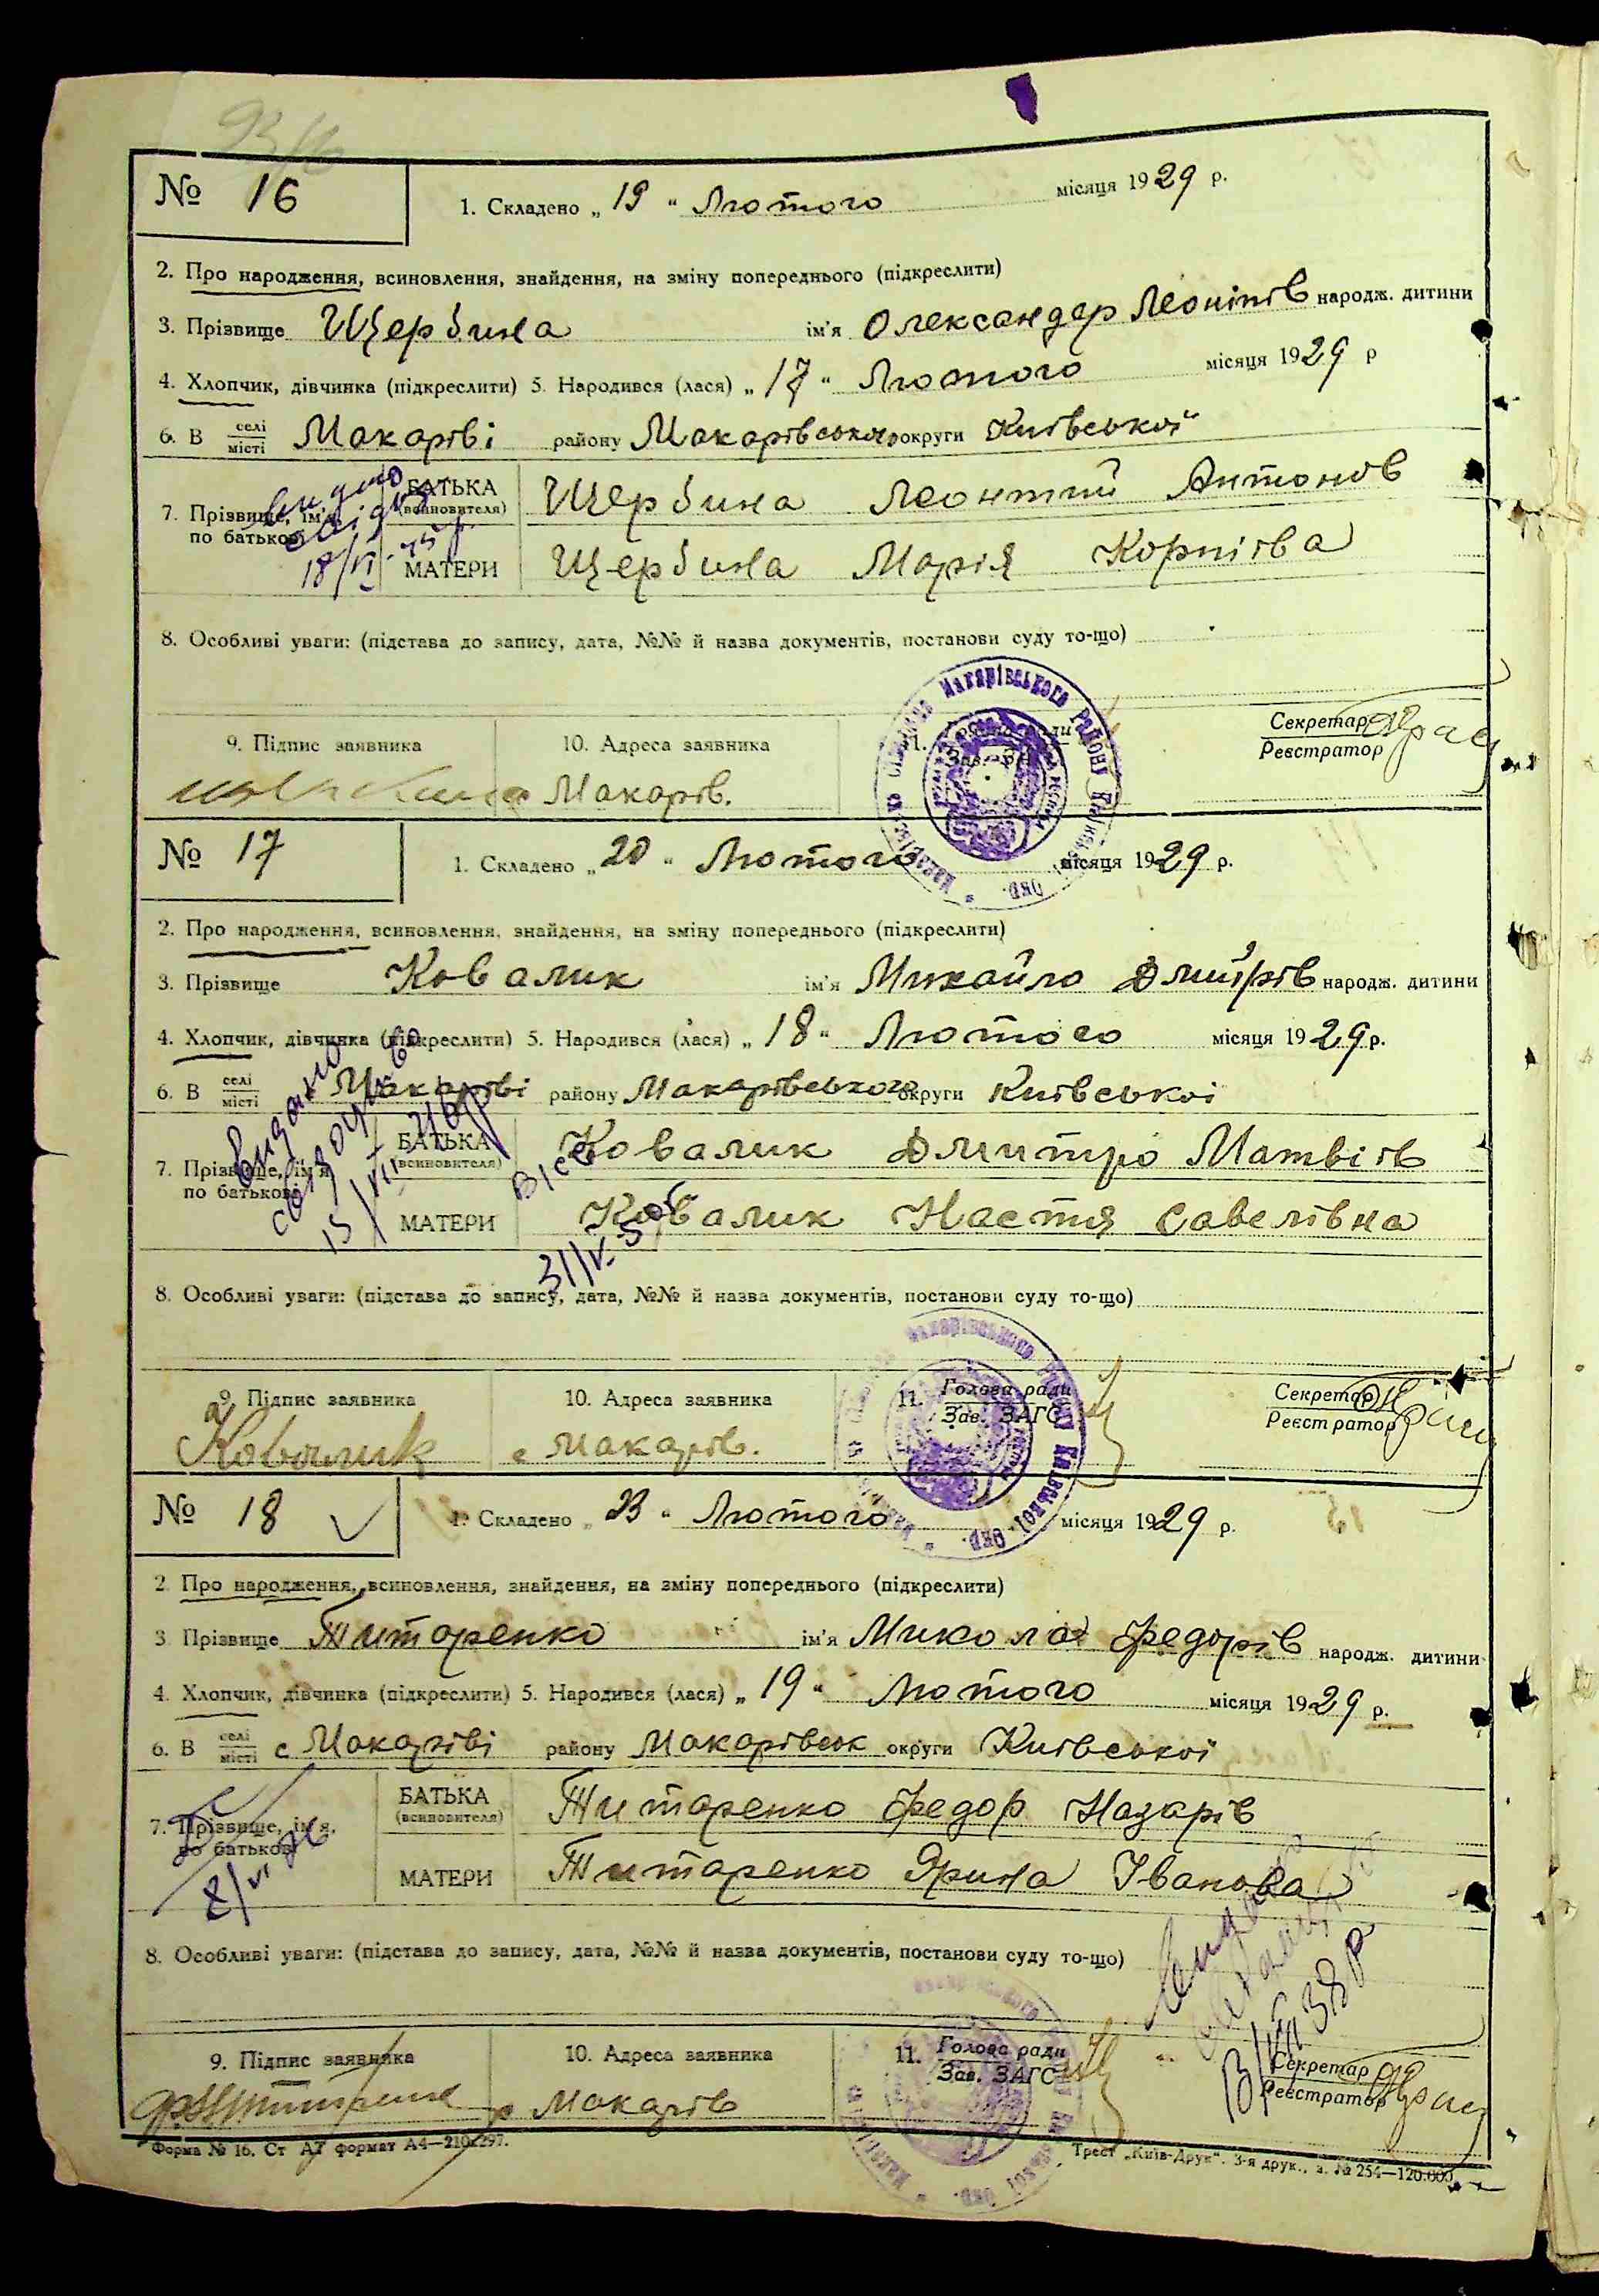 № 16
1. Складено „ 19 “ Лютого місяця 1929 р.
2. Про народження, всиновлення, знайдення, на зміну попереднього (підкреслити)
3. Прізвище Щербина ім'я Олександер Леонтів народж. дитини
4. Хлопчик, дівчинка (підкреслити) 5. Народився (лася) „ 17 “ Лютого місяця 1929 р
6. В селі місті Макарові району Макарівського округи Київської
7. Прізвище, ім'я, по батькові БАТЬКА (всиновителя) Щербина Леонтий Антонов
МАТЕРИ Щербина Марія Корнієва
видано
18/VI
8. Особливі уваги: (підстава до запису, дата, №№ й назва документів, постанови суду то-що)
9. Підпис заявника 10. Адреса заявника 11. Секретар
Реєстратор
Макарів.
Макарівського Району
№ 17
1. Складено „ 20 “ Лютого місяця 1929 р.
2. Про народження, всиновлення, знайдення, на зміну попереднього (підкреслити)
3. Прізвище Ковалик ім'я Михайло Дмитрів народж. дитини
4. Хлопчик, дівчинка (підкреслити) 5. Народився (лася) „ 18 “ Лютого місяця 1929 р.
6. В селі місті Макарові району Макарівського округи Київської
7. Прізвище, ім'я, по батькові БАТЬКА (всиновителя) Ковалик Дмитро Матвіїв
МАТЕРИ Ковалик Настя Савелівна
Видано
8. Особливі уваги: (підстава до запису, дата, №№ й назва документів, постанови суду то-що)
9. Підпис заявника 10. Адреса заявника 11. Голова ради Зав. ЗАГС Секретар
Реєстратор
Ковалик с Макарів.
Макарівського Району Київської Окр.
№ 18
1. Складено „ 23 “ Лютого місяця 1929 р.
2. Про народження, всиновлення, знайдення, на зміну попереднього (підкреслити)
3. Прізвище Титаренко ім'я Микола Федорів народж. дитини
4. Хлопчик, дівчинка (підкреслити) 5. Народився (лася) „ 19 “ Лютого місяця 1929 р.
6. В селі місті с Макарові району Макарівськ округи Київської
7. Прізвище, ім'я, по батькові БАТЬКА (всиновителя) Титаренко Федор Назарів
МАТЕРИ Титаренко Ярина Іванова
8. Особливі уваги: (підстава до запису, дата, №№ й назва документів, постанови суду то-що)
9. Підпис заявника 10. Адреса заявника 11. Голова ради Зав. ЗАГС Секретар
Реєстратор
Макарів
Форма № 16. Ст А7 формат А4—210×297.
Трест „Київ-Друк“. 3-я друк., з. № 254—120.000